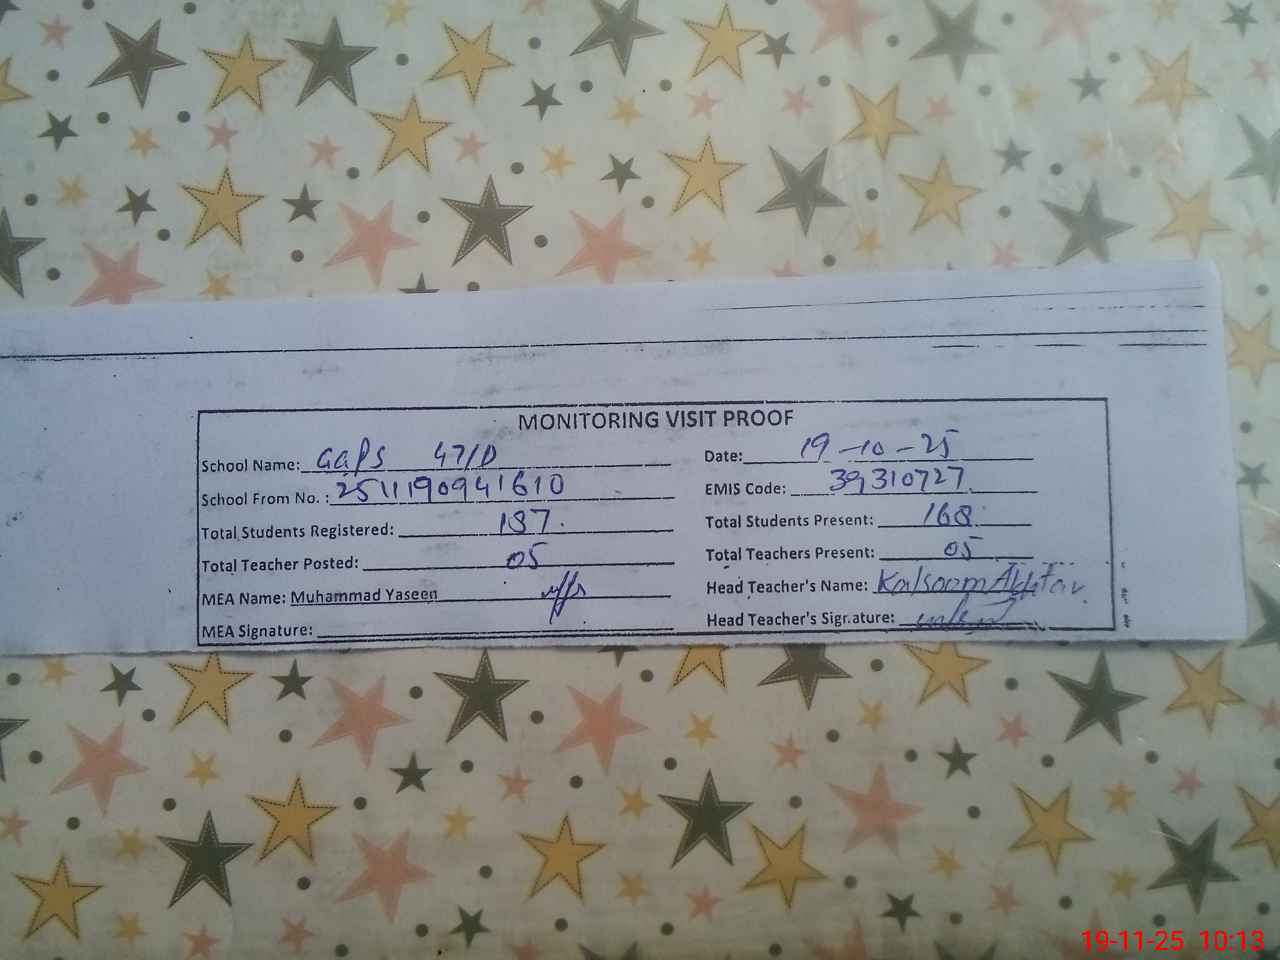 MONITORING VISIT PROOF
School Name: GGPS 47/D Date: 19-10-25
School From No. : 2511190941610 EMIS Code: 39310727
Total Students Registered: 187. Total Students Present: 168
Total Teacher Posted: 05 Total Teachers Present: 05
MEA Name: Muhammad Yaseen Head Teacher's Name: Kalsoom Akhtar
MEA Signature: Head Teacher's Signature:
19-11-25 10:13